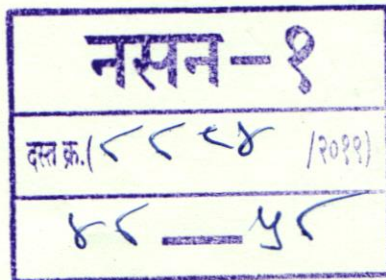 नसन-१
दस्त क्र.(८८९४ /२०११)
४८ — ५८